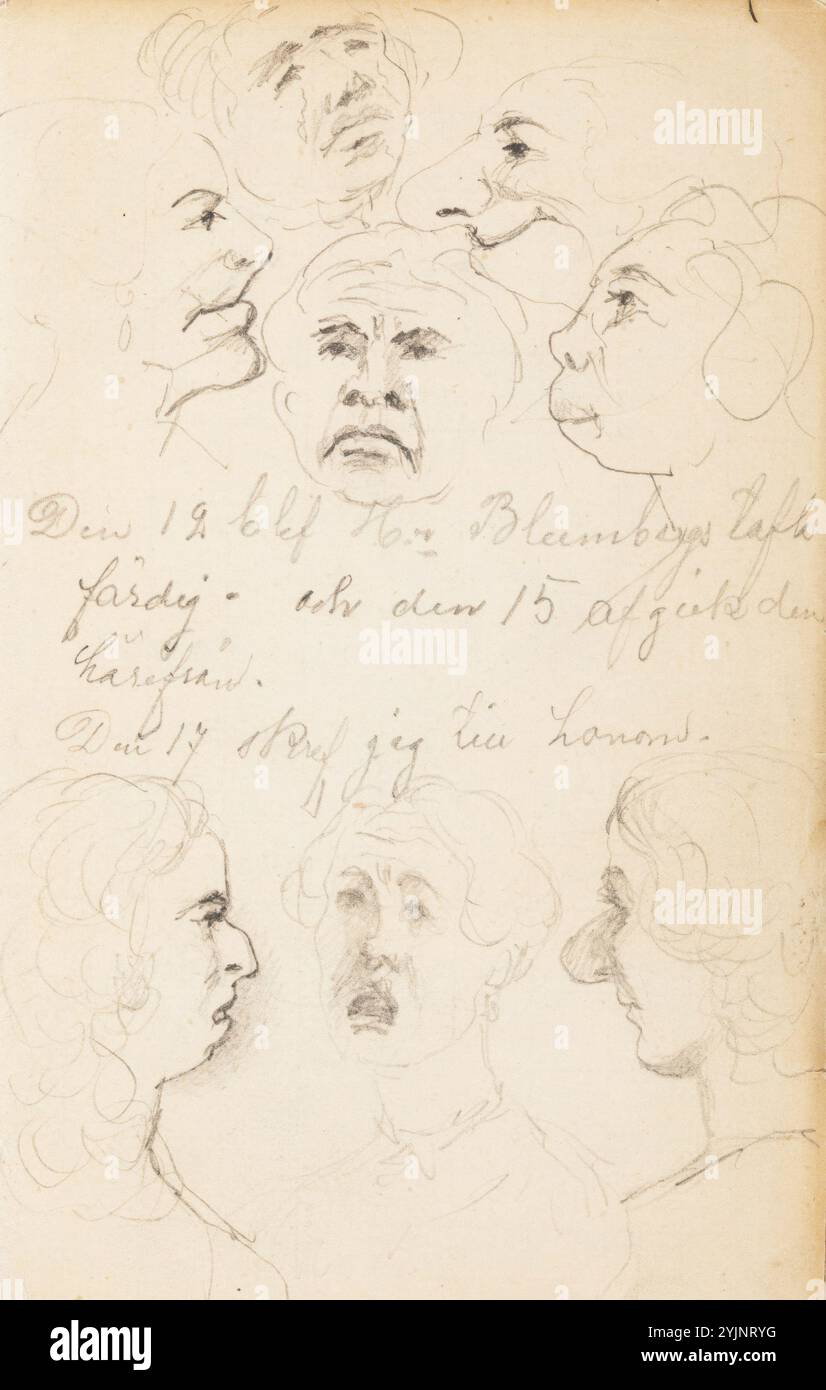 Den 12 blef Hrr Blumbergs tafla
färdig. och den 15 afgick den
härifrån.
Den 17 skref jag till honom.
alamy
alamy
alamy
alamy
alamy
Image ID: 2YJNRYG
www.alamy.com